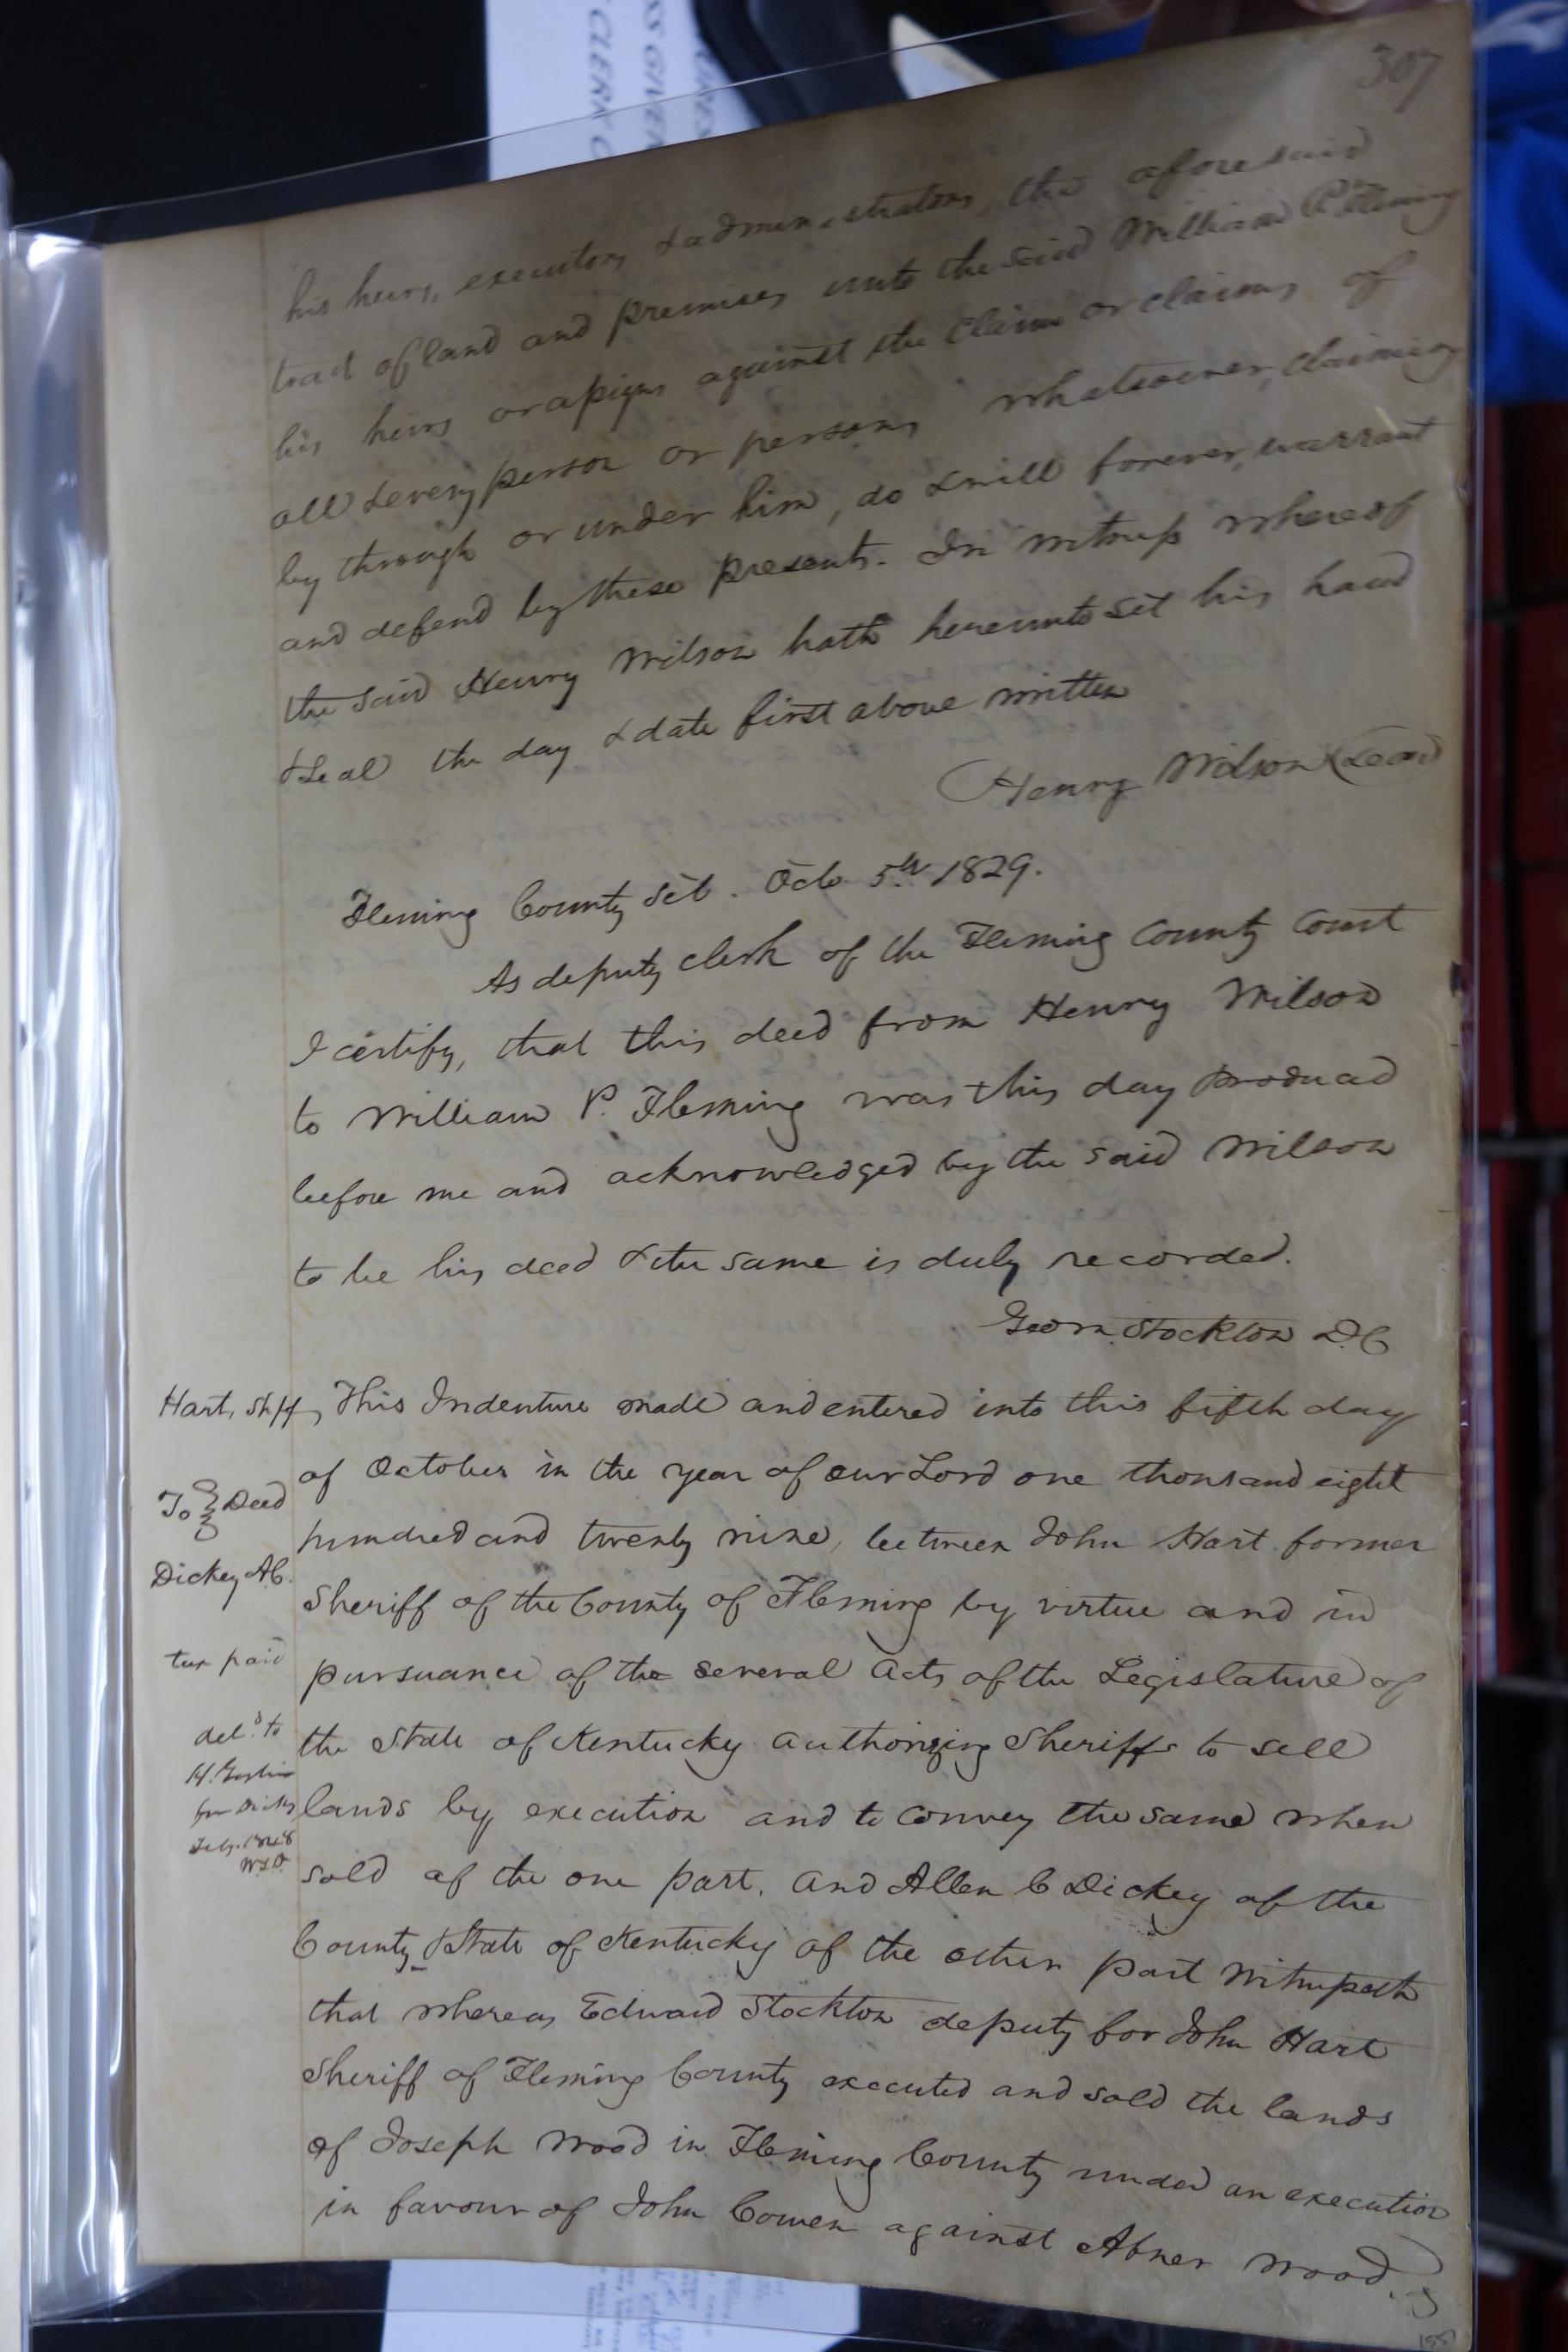 307
his heirs, executors & administrators, the aforesaid
tract of land and premises unto the said William P. Fleming
his heirs or assigns against the claim or claims of
all & every person or persons whatsoever, claiming
by through or under him, do & will forever, warrant
and defend by these presents. In witness whereof
the said Henry Wilson hath hereunto set his hand
& Seal the day & date first above written
Henry Wilson (Seal)
Fleming County Sct. Octo. 5th 1829.
As deputy clerk of the Fleming County Court
I certify, that this deed from Henry Wilson
to William P. Fleming was this day produced
before me and acknowledged by the said Wilson
to be his deed & the same is duly recorded.
Stockton D.C
Hart, Shff,
To } Deed
Dickey A.C.
tax paid
deld. to
H.
for Dickey
Feby. 1848
This Indenture made and entered into this fifth day
of October in the year of our Lord one thousand eight
hundred and twenty nine, between John Hart former
Sheriff of the County of Fleming by virtue and in
pursuance of the several acts of the Legislature of
the State of Kentucky authorizing Sheriffs to sell
lands by execution and to convey the same when
sold of the one part, and Allen C Dickey of the
County & State of Kentucky of the other part Witnesseth
that whereas Edward Stockton deputy for John Hart
Sheriff of Fleming County executed and sold the lands
of Joseph Wood in Fleming County under an execution
in favour of John Cowen against Abner Wood,